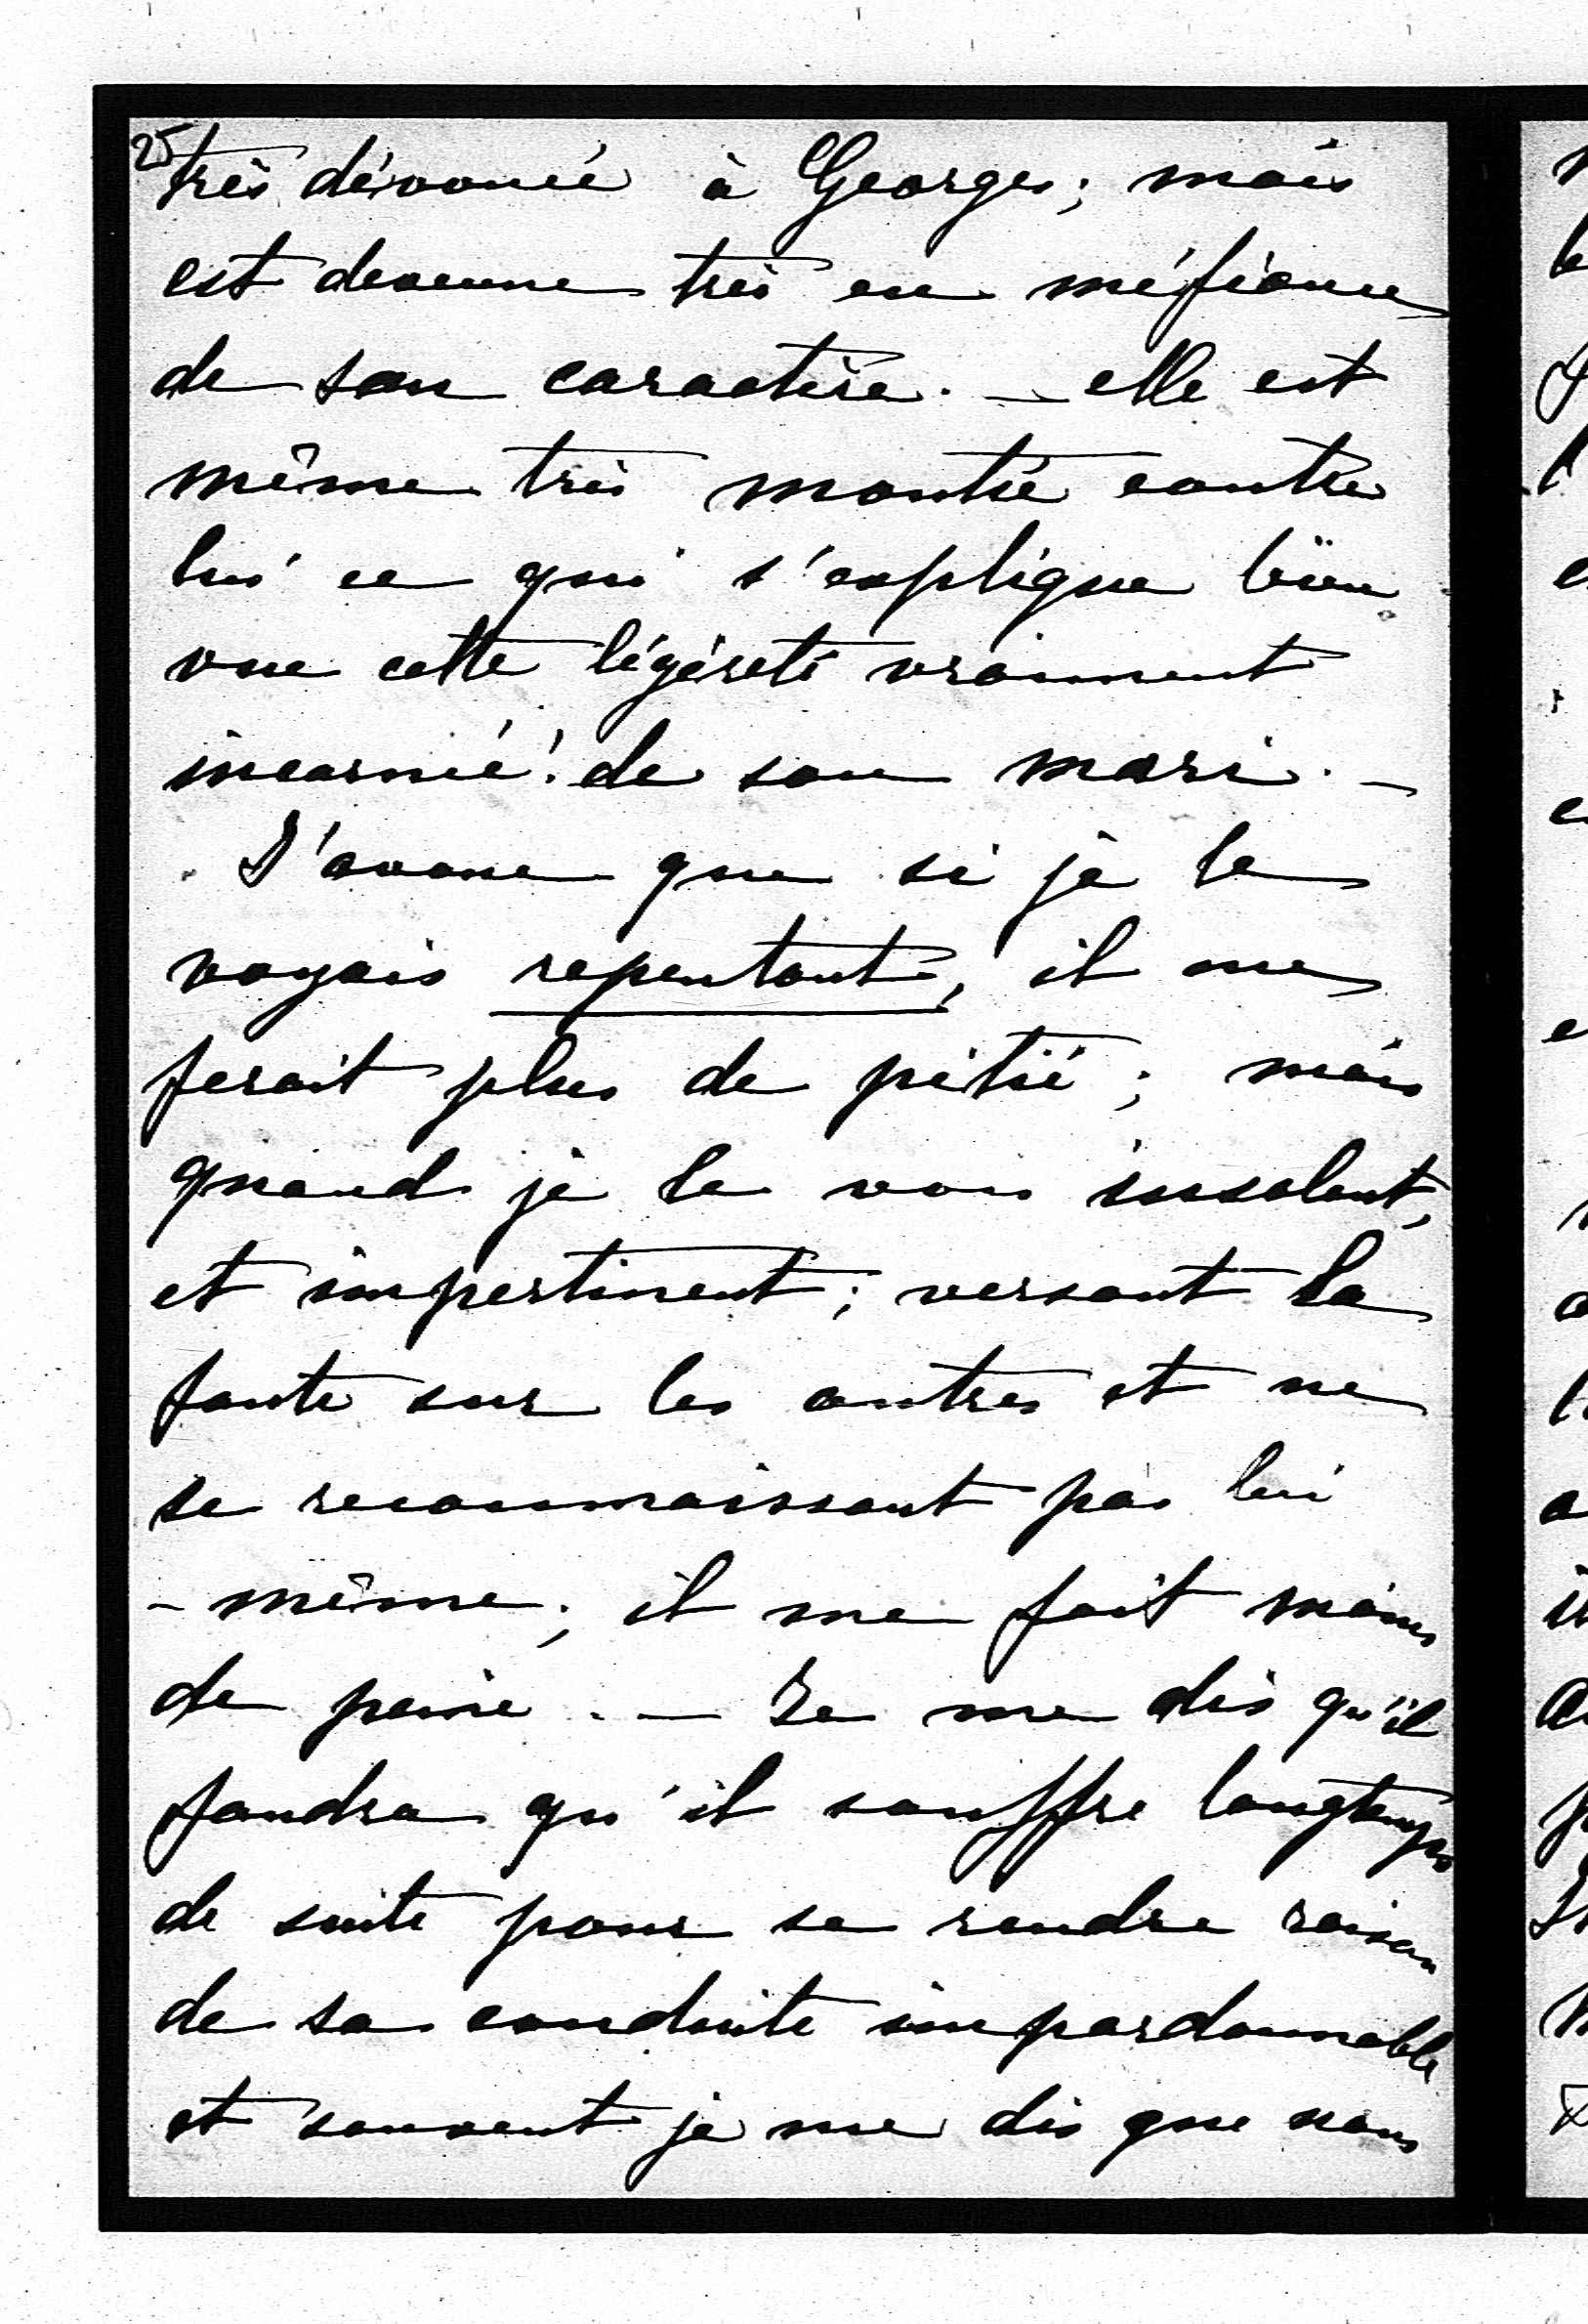 25
très dévouée à Georges; mais
est devenue très en méfiance
de son caractère. — elle est
même très montée contre
lui ce qui s'explique bien
vue cette légèreté vraiment
incarnée! de son mari. —
J'avoue que si je le
voyais repentant, il me
ferait plus de pitié; mais
quand je le vois insolent,
et impertinent; versant la
faute sur les autres et ne
se reconnaissant pas lui
- même; il me fait moins
de peine. — Je me dis qu'il
faudra qu'il souffre longtemps
de suite pour se rendre raison
de sa conduite impardonnable
et souvent je me dis que nous